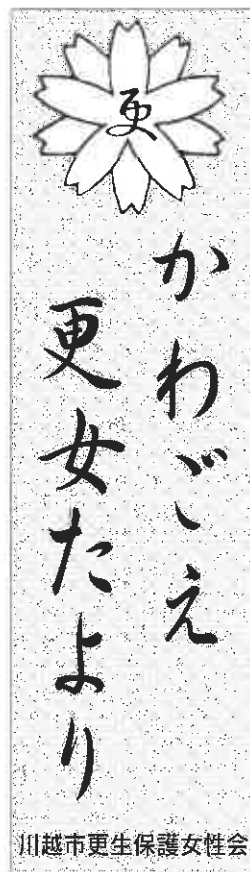 更
かわごえ
更女たより
川越市更生保護女性会